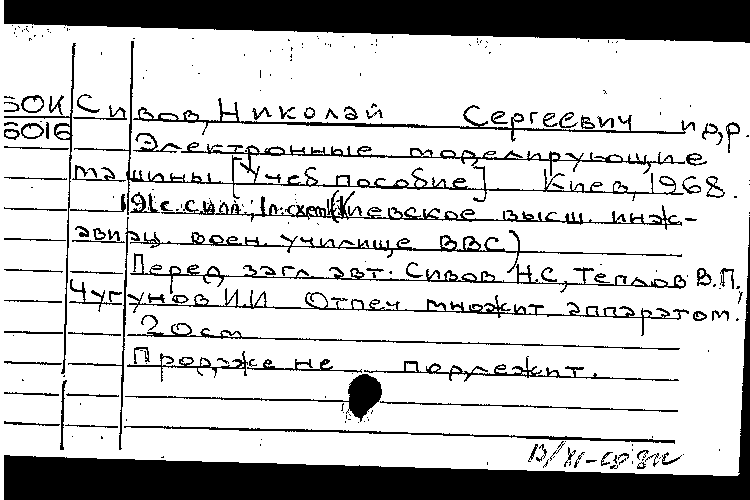 Сивов, Николай Сергеевич и др.
6016 Электронные моделирующие
машины [Учеб. пособие] Киев, 1968.
191 с. с илл.; 1 л. схем (Киевское высш. инж-
авиац. воен. училище ВВС)
Перед загл. авт: Сивов Н.С., Теплов В.П.,
Чугунов И.И Отпеч множит. аппаратом.
20 см
Продаже не подлежит.